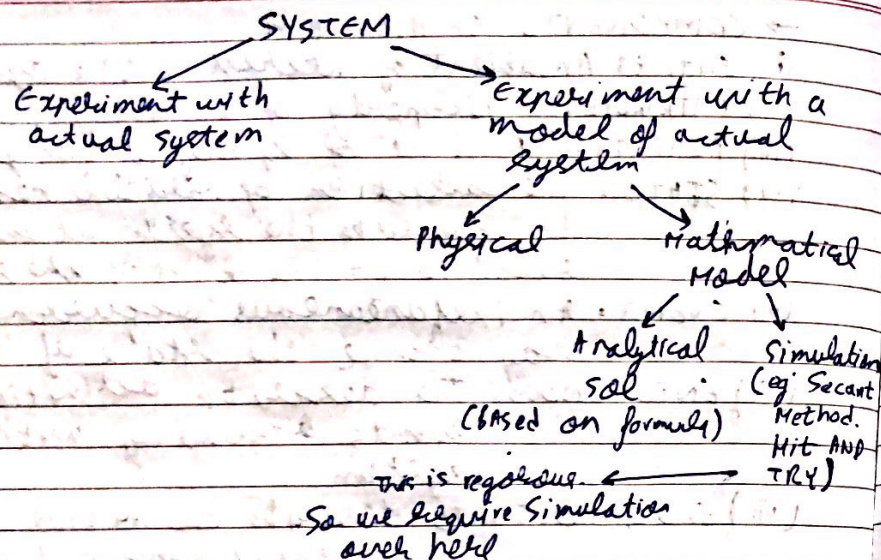 SYSTEM
Experiment with
actual system
Experiment with a
model of actual
system
Physical
Mathmatical
Model
Analytical
sol
(bAsed on formula)
Simulation
(eg Secant
Method.
Hit AND
TRY)
This is regorous.
So we require Simulation
over here